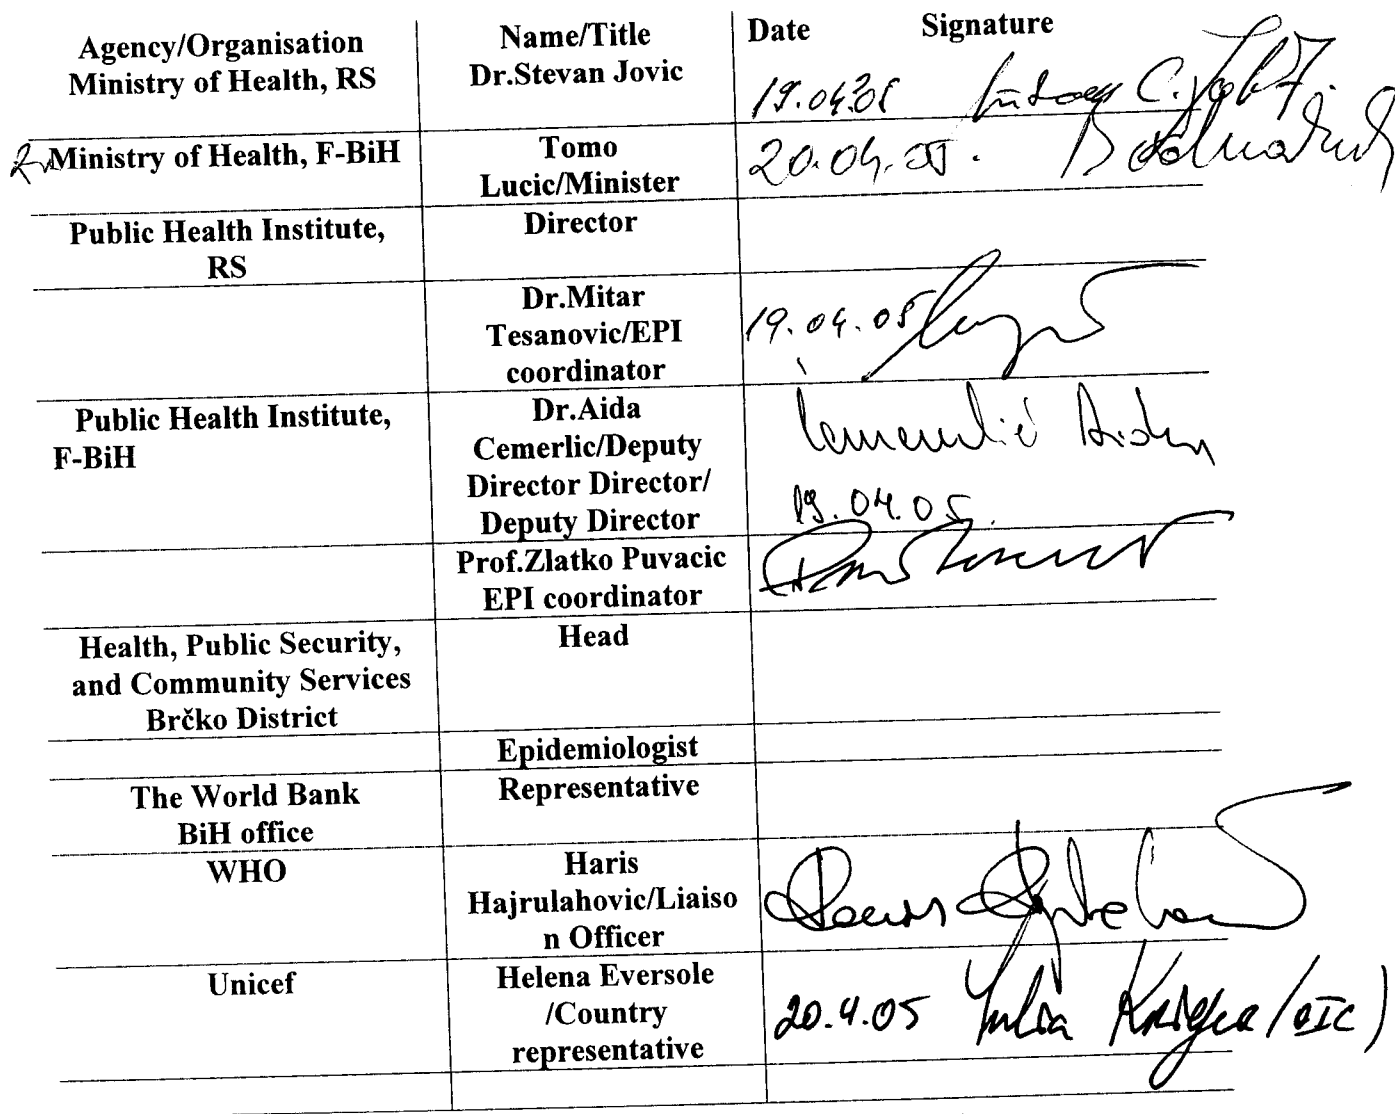 Agency/Organisation Name/Title Date Signature
Ministry of Health, RS Dr.Stevan Jovic 19.04.05
Ministry of Health, F-BiH Tomo
Lucic/Minister 20.04.05.
Public Health Institute,
RS Director
Dr.Mitar
Tesanovic/EPI
coordinator 19.04.05
Public Health Institute,
F-BiH Dr.Aida
Cemerlic/Deputy
Director Director/
Deputy Director Cemerlić Aida
19.04.05.
Prof.Zlatko Puvacic
EPI coordinator
Health, Public Security,
and Community Services
Brčko District Head
Epidemiologist
The World Bank
BiH office Representative
WHO Haris
Hajrulahovic/Liaiso
n Officer
Unicef Helena Eversole
/Country
representative 20.4.05 /OIC)